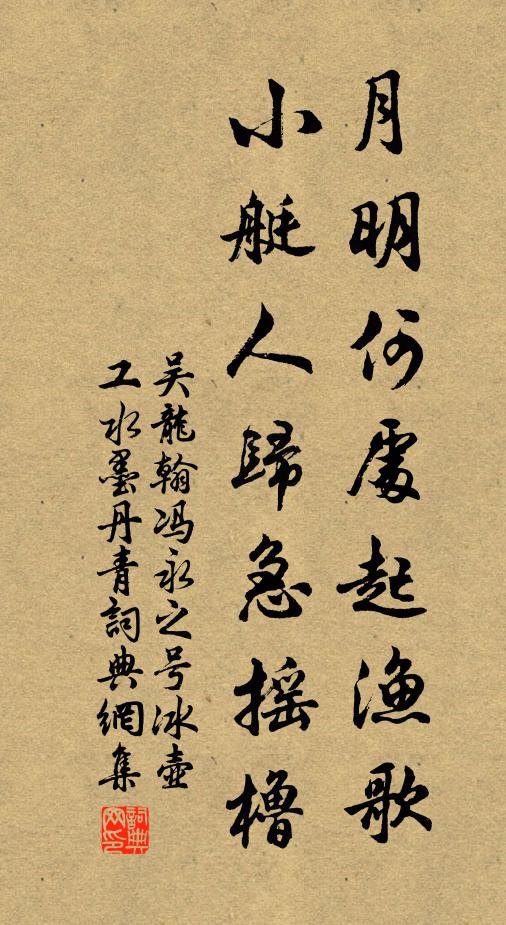 月明何處起漁歌
小艇人歸急搖櫓
吴龍翰冯永之号冰壶
工水墨丹青詞典網集
詞典网印